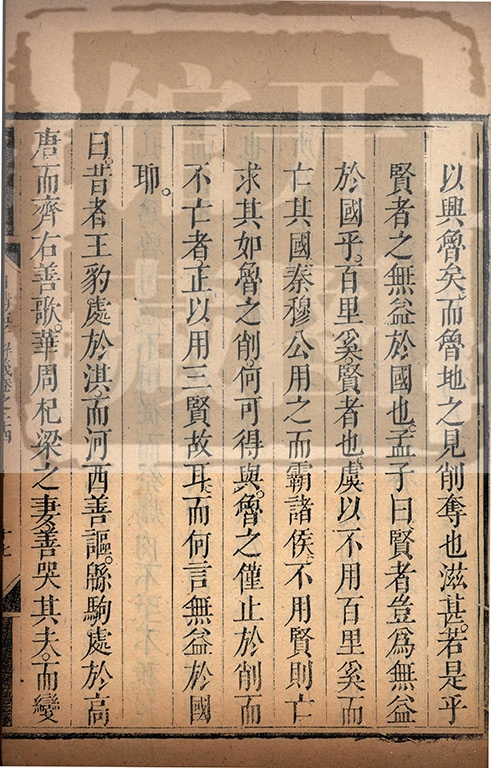 以興魯矣而魯地之見削奪也滋甚若是乎
賢者之無益於國也孟子曰賢者豈爲無益
於國乎百里奚賢者也虞以不用百里奚而
亡其國秦穆公用之而霸諸侯不用賢則亡
求其如魯之削何可得與魯之僅止於削而
不亡者正以用三賢故耳而何言無益於國
耶。
曰昔者王豹處於淇而河西善謳緜駒處於高
唐而齊右善歌華周杞梁之妻善哭其夫而變